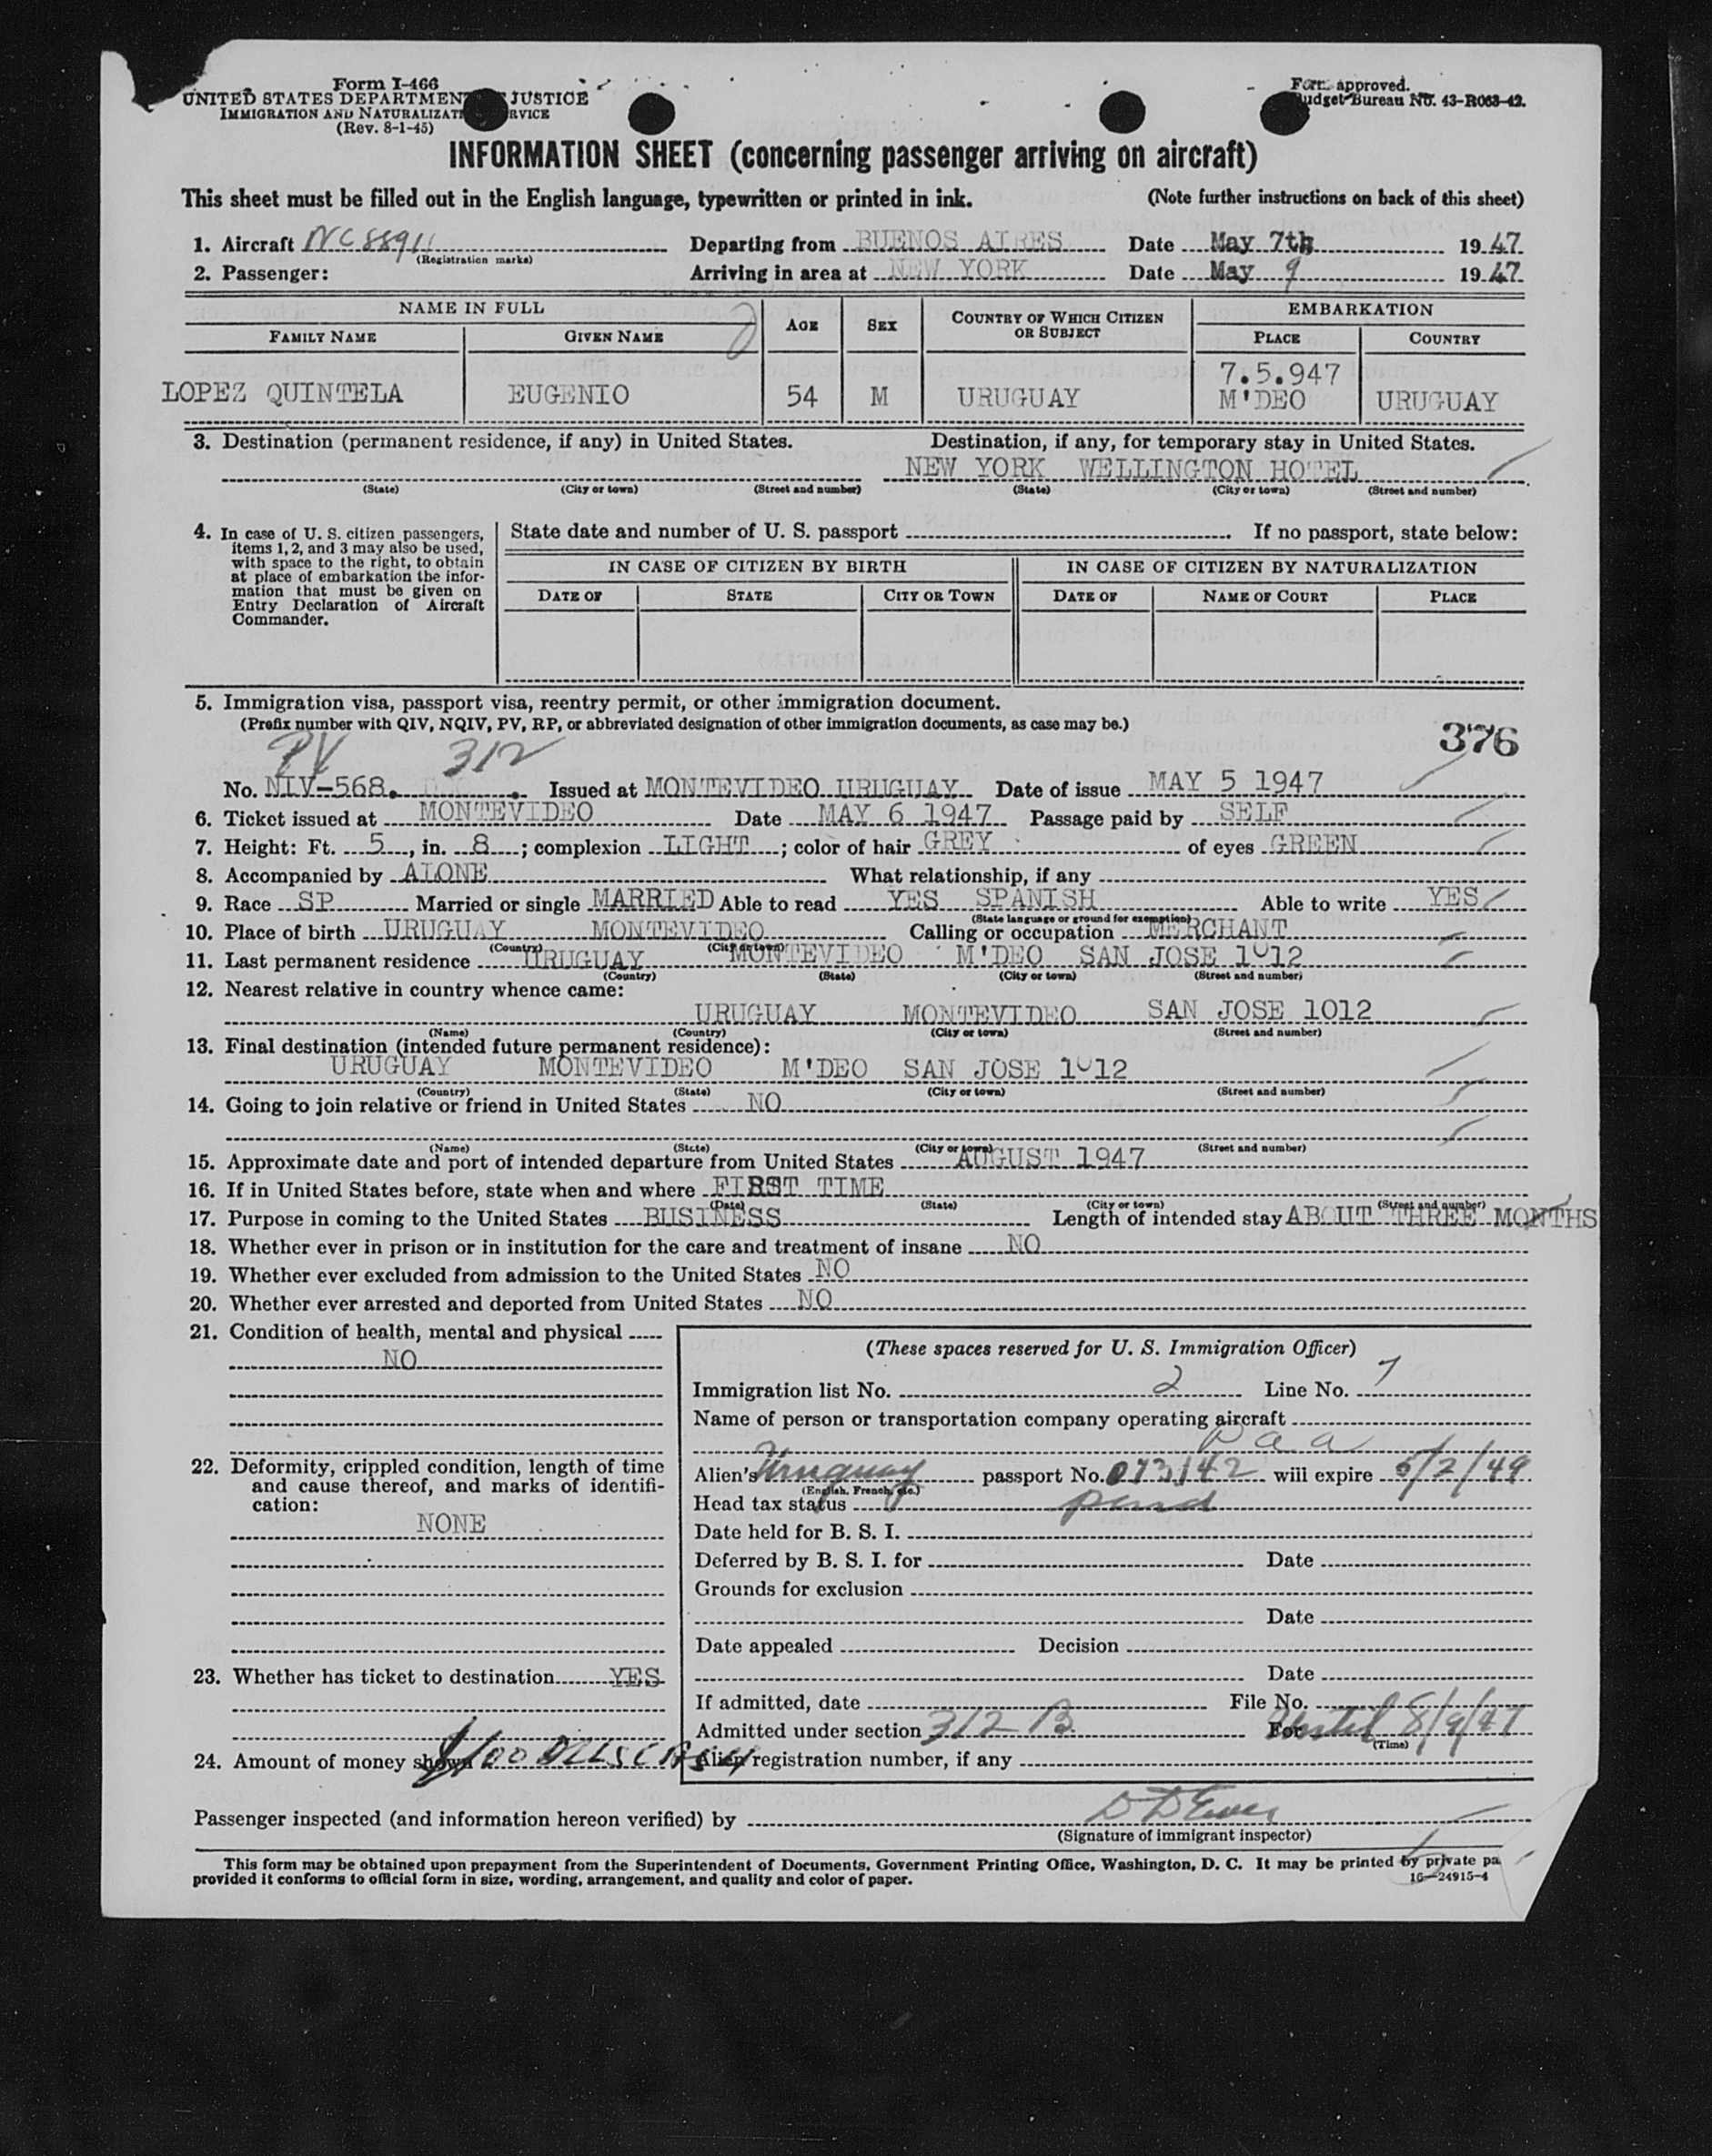 Form I-466
UNITED STATES DEPARTMENT JUSTICE
IMMIGRATION AND
(Rev. 8-1-45)
Form approved.
Budget Bureau No. 43-R063-42.
INFORMATION SHEET (concerning passenger arriving on aircraft)
This sheet must be filled out in the English language, typewritten or printed in ink. (Note further instructions on back of this sheet)
1. Aircraft NC 88911 Departing from BUENOS AIRES Date May 7th 1947
(Registration marks)
2. Passenger: Arriving in area at NEW YORK Date May 9 1947
NAME IN FULL AGE SEX COUNTRY OF WHICH CITIZEN OR SUBJECT EMBARKATION
FAMILY NAME GIVEN NAME PLACE COUNTRY
7.5.947
LOPEZ QUINTELA EUGENIO 54 M URUGUAY M'DEO URUGUAY
3. Destination (permanent residence, if any) in United States. Destination, if any, for temporary stay in United States.
NEW YORK WELLINGTON HOTEL
(State) (City or town) (Street and number) (State) (City or town) (Street and number)
4. In case of U. S. citizen passengers,
items 1, 2, and 3 may also be used,
with space to the right, to obtain
at place of embarkation the infor-
mation that must be given on
Entry Declaration of Aircraft
Commander.
State date and number of U. S. passport If no passport, state below:
IN CASE OF CITIZEN BY BIRTH IN CASE OF CITIZEN BY NATURALIZATION
DATE OF STATE CITY OR TOWN DATE OF NAME OF COURT PLACE
5. Immigration visa, passport visa, reentry permit, or other immigration document.
(Prefix number with QIV, NQIV, PV, RP, or abbreviated designation of other immigration documents, as case may be.)
376
PV 312
No. NIV-568. Issued at MONTEVIDEO URUGUAY Date of issue MAY 5 1947
6. Ticket issued at MONTEVIDEO Date MAY 6 1947 Passage paid by SELF
7. Height: Ft. 5, in. 8; complexion LIGHT; color of hair GREY of eyes GREEN
8. Accompanied by ALONE What relationship, if any
9. Race SP Married or single MARRIED Able to read YES SPANISH Able to write YES
(State language or ground for exemption)
10. Place of birth URUGUAY MONTEVIDEO Calling or occupation MERCHANT
(Country) (City or town)
11. Last permanent residence URUGUAY MONTEVIDEO M'DEO SAN JOSE 1012
(Country) (State) (City or town) (Street and number)
12. Nearest relative in country whence came:
URUGUAY MONTEVIDEO SAN JOSE 1012
(Name) (Country) (City or town) (Street and number)
13. Final destination (intended future permanent residence):
URUGUAY MONTEVIDEO M'DEO SAN JOSE 1012
(Country) (State) (City or town) (Street and number)
14. Going to join relative or friend in United States NO
(Name) (State) (City or town) (Street and number)
15. Approximate date and port of intended departure from United States AUGUST 1947
16. If in United States before, state when and where FIRST TIME
(Date) (State) (City or town) (Street and number)
17. Purpose in coming to the United States BUSINESS Length of intended stay ABOUT THREE MONTHS
18. Whether ever in prison or in institution for the care and treatment of insane NO
19. Whether ever excluded from admission to the United States NO
20. Whether ever arrested and deported from United States NO
21. Condition of health, mental and physical
NO
22. Deformity, crippled condition, length of time
and cause thereof, and marks of identifi-
cation:
NONE
23. Whether has ticket to destination YES
24. Amount of money shown $100 DLLS CASH
(These spaces reserved for U. S. Immigration Officer)
Immigration list No. 2 Line No. 7
Name of person or transportation company operating aircraft
P a a
Alien's Uruguay passport No. 073142 will expire 5/2/49
(English, French, etc.)
Head tax status pend
Date held for B. S. I.
Deferred by B. S. I. for Date
Grounds for exclusion
Date
Date appealed Decision
Date
If admitted, date File No.
Admitted under section 312 B For Until 8/9/47
(Time)
Alien registration number, if any
Passenger inspected (and information hereon verified) by
(Signature of immigrant inspector)
This form may be obtained upon prepayment from the Superintendent of Documents, Government Printing Office, Washington, D. C. It may be printed by private pa
provided it conforms to official form in size, wording, arrangement, and quality and color of paper.
16—24915-4